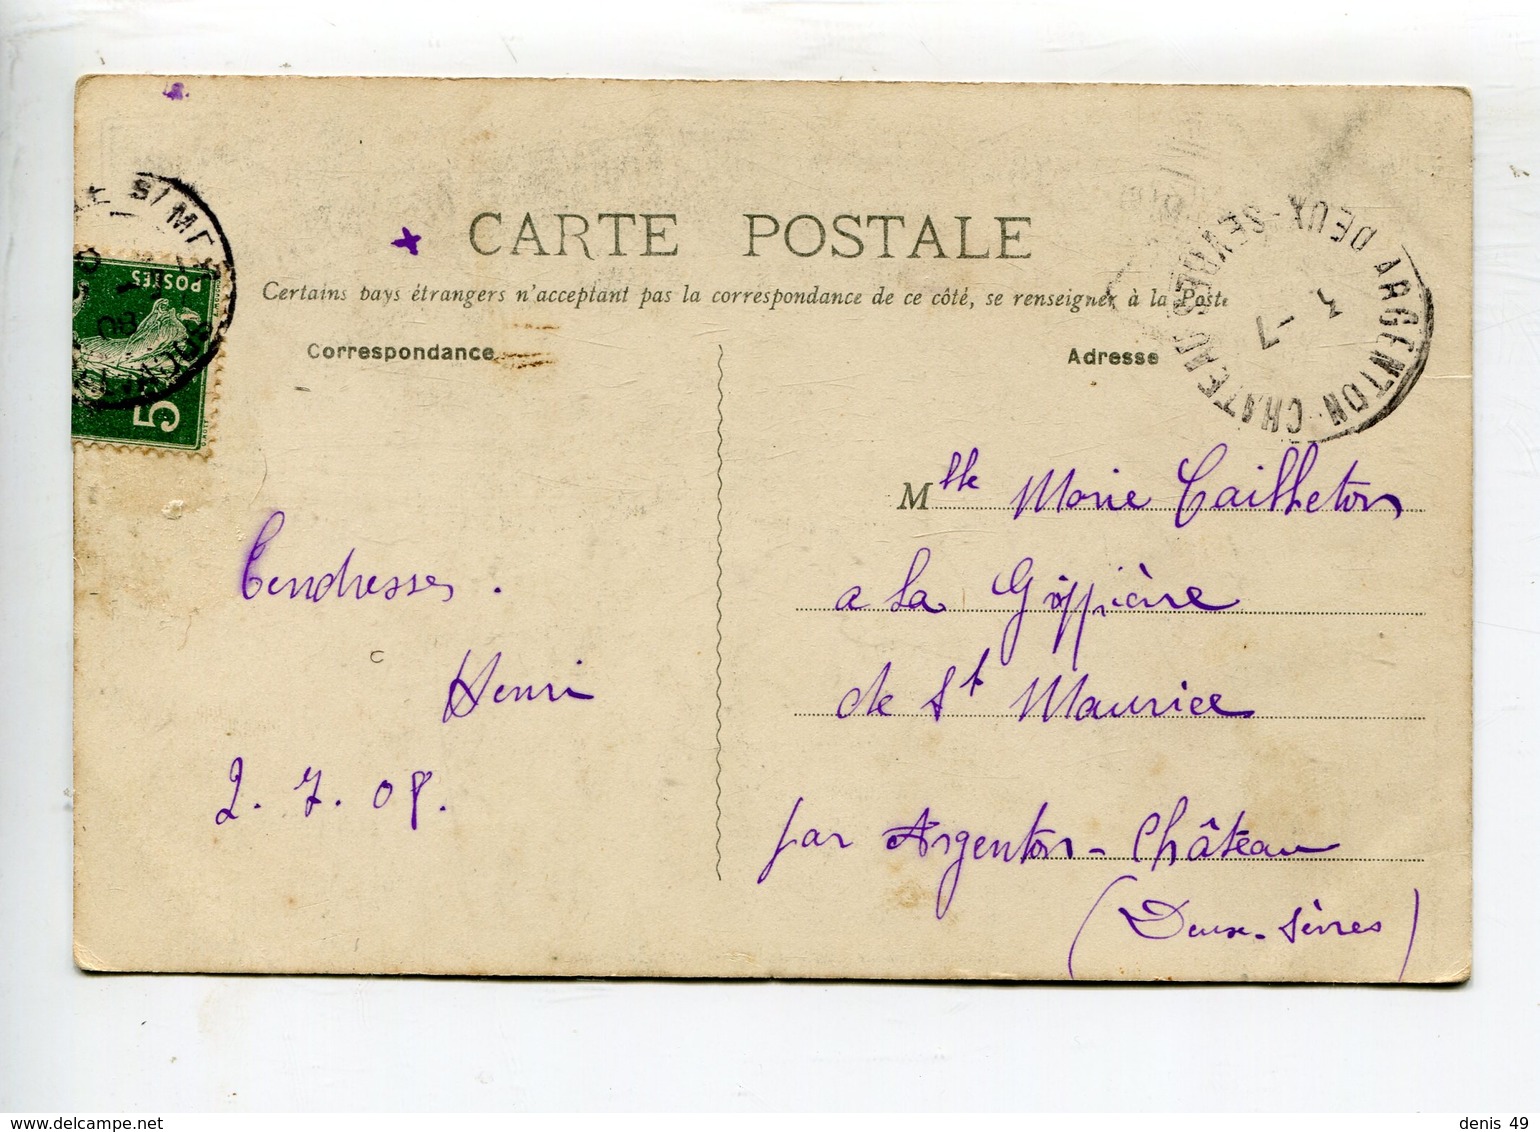 CARTE POSTALE
Certains pays étrangers n'acceptent pas la correspondance de ce côté, se renseigner à la Poste
Correspondance
Adresse
POSTES
5
08
ARGENTON-CHATEAU
DEUX-SEVRES
3 -7
Tendresses.
Henri
2.7.08.
Mlle Marie Cailleton
a la Grippière
de St Maurice
par Argenton-Château
(Deux-Sèvres)
www.delcampe.net
denis 49